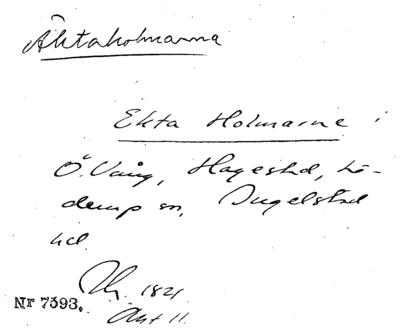 Äktaholmarna
Ekta Holmarne i
Ö Vång, Hagestad, Lö-
derup sn, Ingelstad
hd.
1821
Akt 11.
Nr 7393.